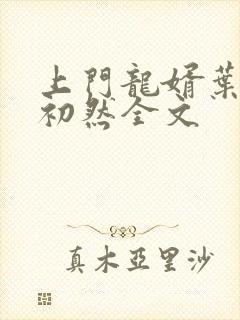 上門龍婿葉
初然全文
真木亞里沙